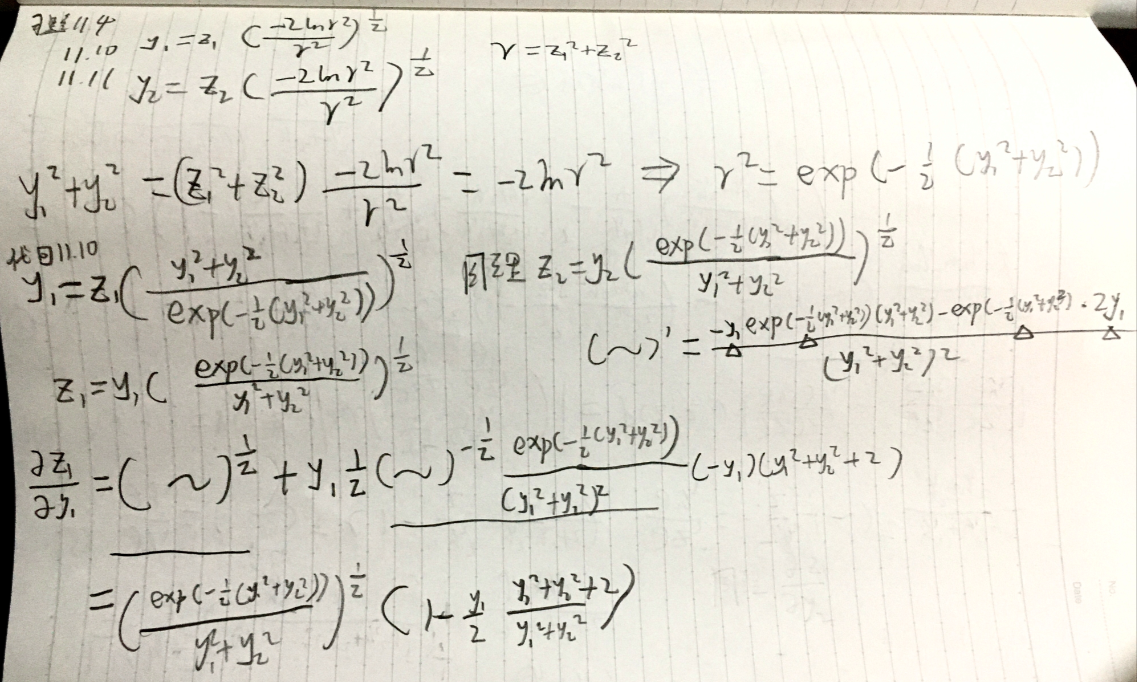 习题11.4
11.10 y₁ = z₁ (-2lnr²/r²)^½ r = z₁² + z₂²
11.11 y₂ = z₂ (-2lnr²/r²)^½
y₁² + y₂² = (z₁² + z₂²) -2lnr²/r² = -2lnr² ⇒ r² = exp(-½(y₁² + y₂²))
代回11.10
y₁ = z₁ ((y₁² + y₂²)/exp(-½(y₁² + y₂²)))^½ 同理 z₂ = y₂ (exp(-½(y₁² + y₂²))/(y₁² + y₂²))^½
z₁ = y₁ (exp(-½(y₁² + y₂²))/(y₁² + y₂²))^½ (~)' = (-y₁ exp(-½(y₁² + y₂²))(y₁² + y₂²) - exp(-½(y₁² + y₂²)) · 2y₁)/(y₁² + y₂²)²
∂z₁/∂y₁ = (~)^½ + y₁ ½ (~)^-½ exp(-½(y₁² + y₂²))/(y₁² + y₂²)² (-y₁)(y₁² + y₂² + 2)
= (exp(-½(y₁² + y₂²))/(y₁² + y₂²))^½ (1 - y₁/2 (y₁² + y₂² + 2)/(y₁² + y₂²))